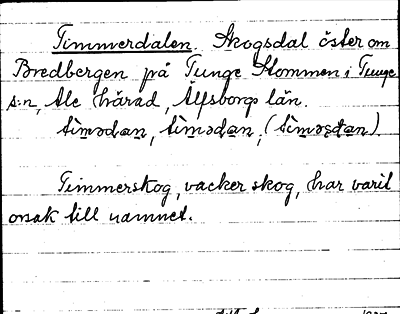 Timmerdalen. Skogsdal öster om
Bredbergen på Tunge Stommen, i Tunge
s:n, Ale härad, Älfsborgs län.
Timmerskog, vacker skog, har varit
orsak till namnet.